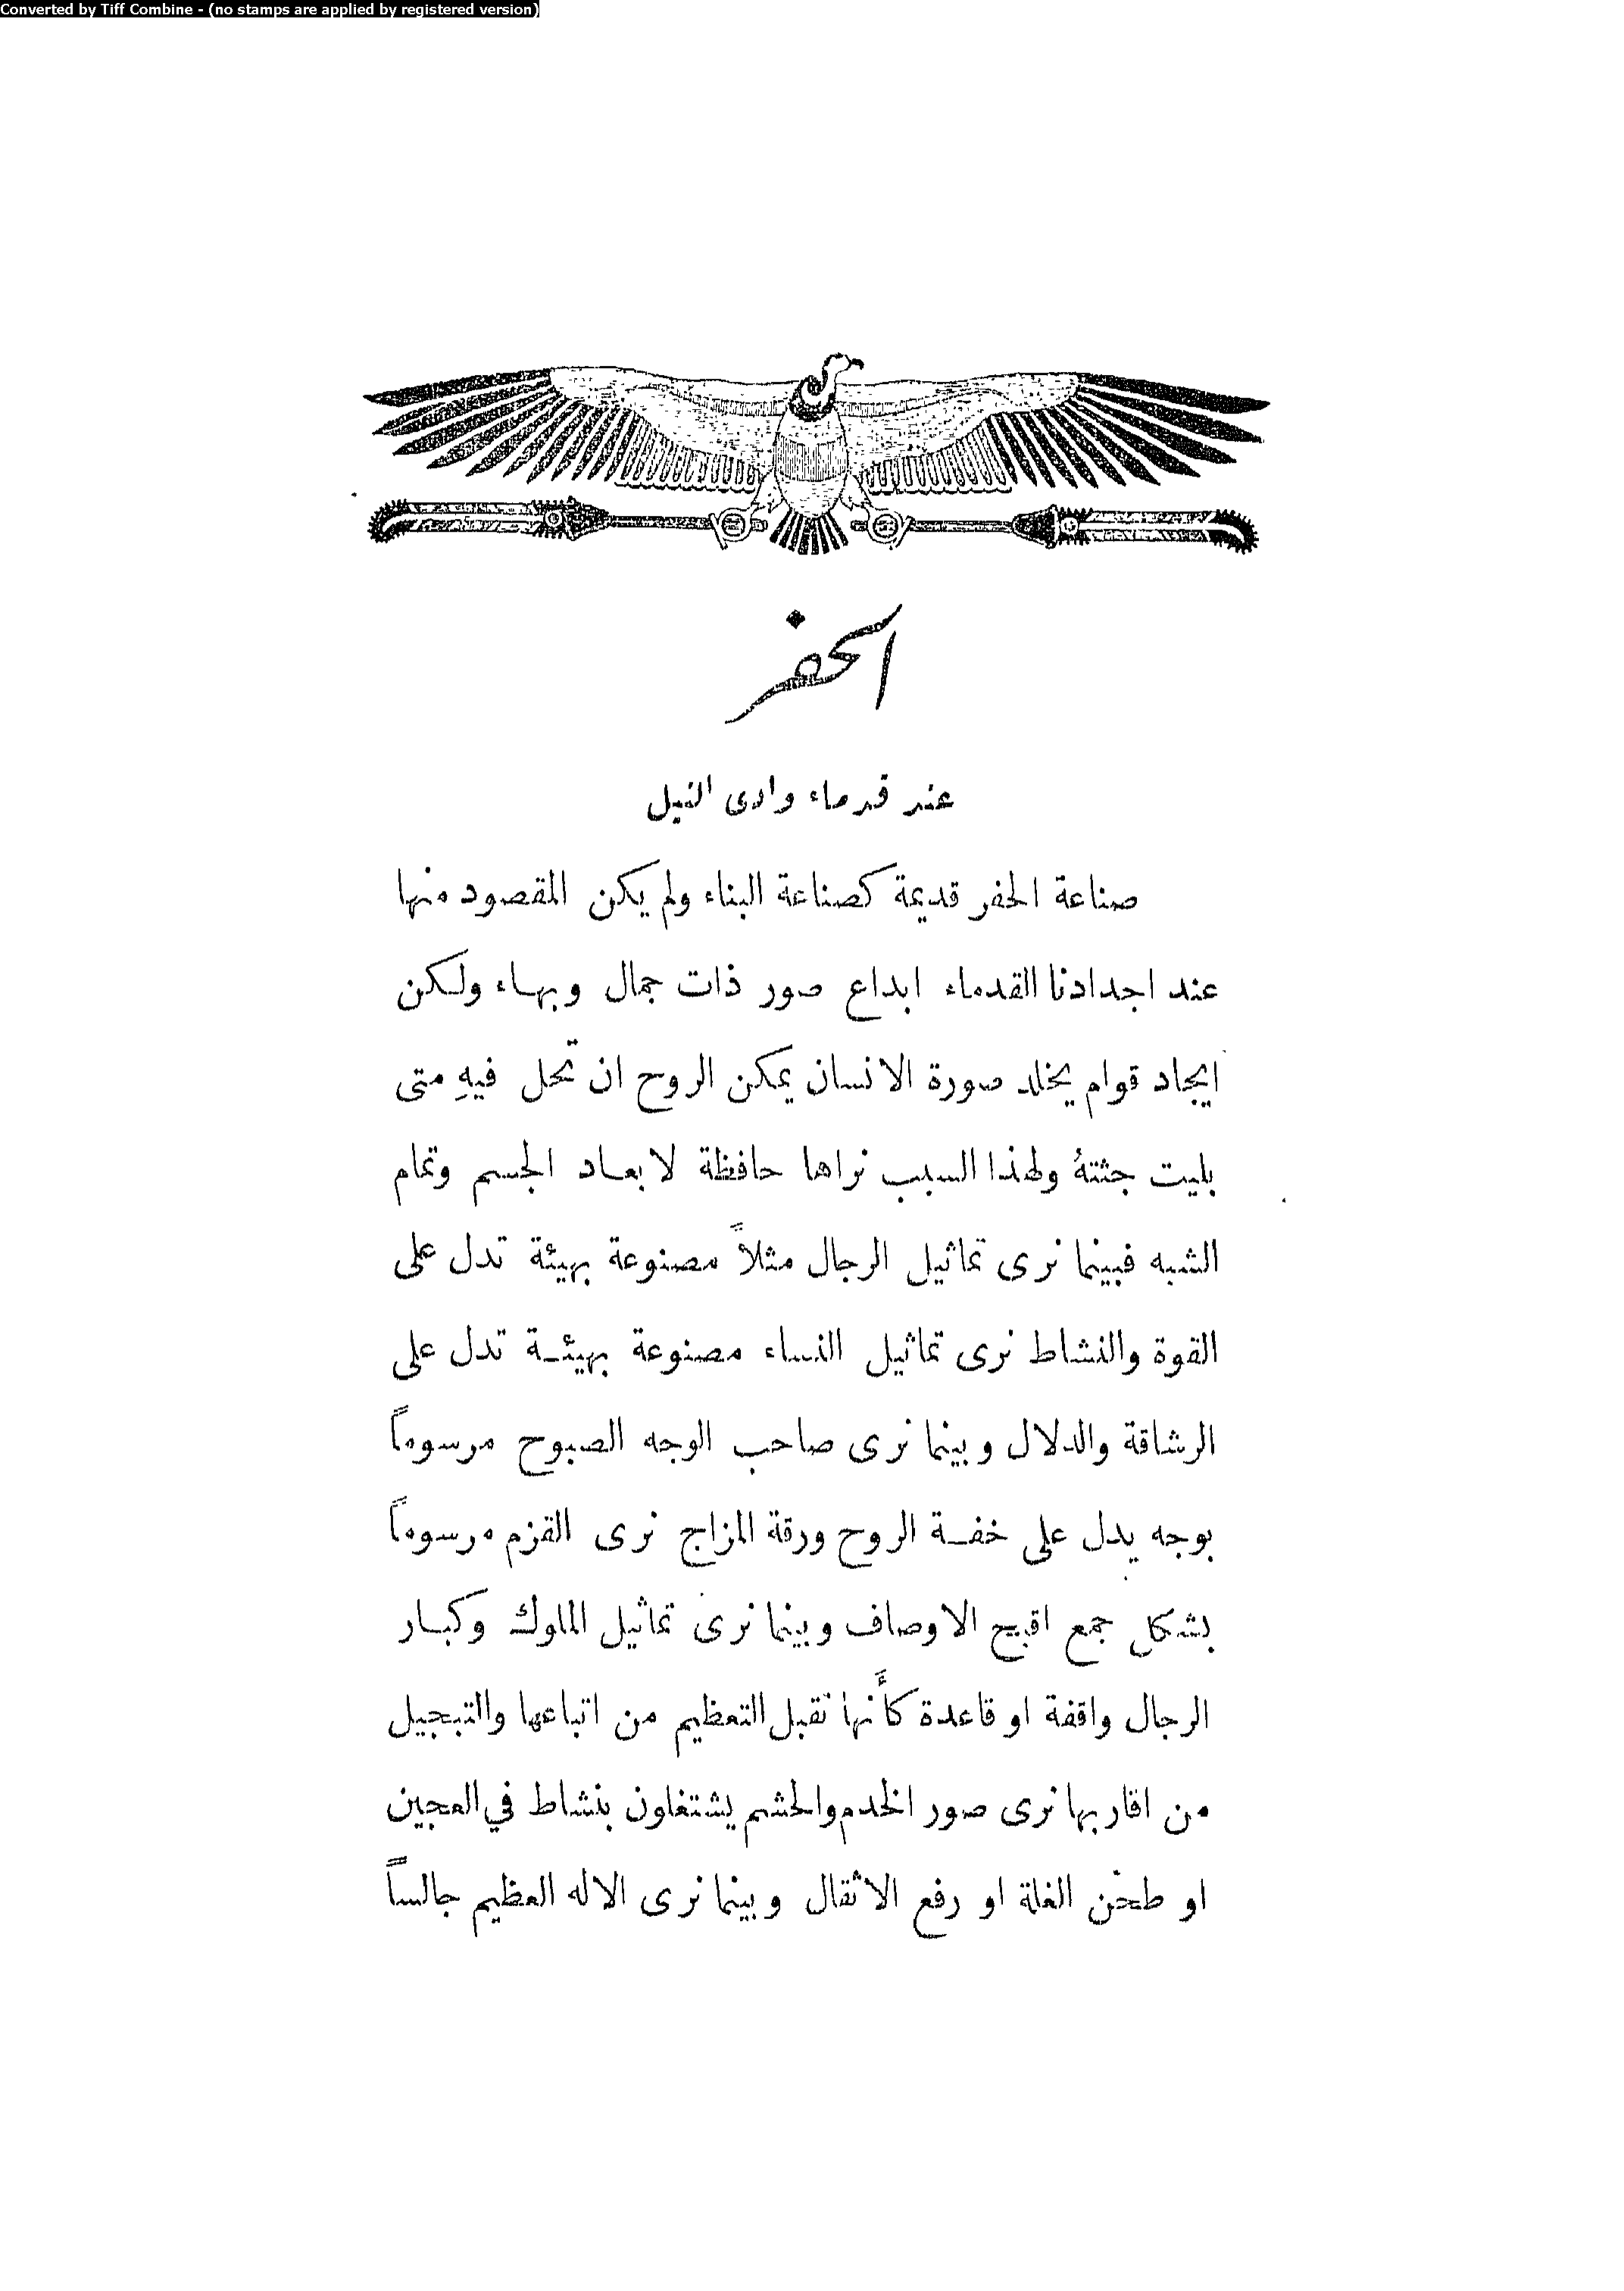 Converted by Tiff Combine - (no stamps are applied by registered version)
الحفر
عند قدماء وادى النيل
صناعة الحفر قديمة كصناعة البناء ولم يكن المقصود منها
عند اجدادنا القدماء ابداع صور ذات جمال وبهاء ولكن
ايجاد قوام يخلد صورة الانسان يمكن الروح ان تحل فيهِ متى
بليت جثتهُ ولهذا السبب نراها حافظة لابعاد الجسم وتمام
الشبه فبينما نرى تماثيل الرجال مثلاً مصنوعة بهيئة تدل على
القوة والنشاط نرى تماثيل النساء مصنوعة بهيئة تدل على
الرشاقة والدلال وبينما نرى صاحب الوجه الصبوح مرسوماً
بوجه يدل على خفة الروح ورقة المزاج نرى القزم مرسوماً
بشكل جمع اقبح الاوصاف وبينما نرى تماثيل الملوك وكبار
الرجال واقفة او قاعدة كأَنها تقبل التعظيم من اتباعها والتبجيل
من اقاربها نرى صور الخدم والحشم يشتغلون بنشاط في العجين
او طحن الغلة او رفع الاثقال وبينما نرى الاله العظيم جالساً